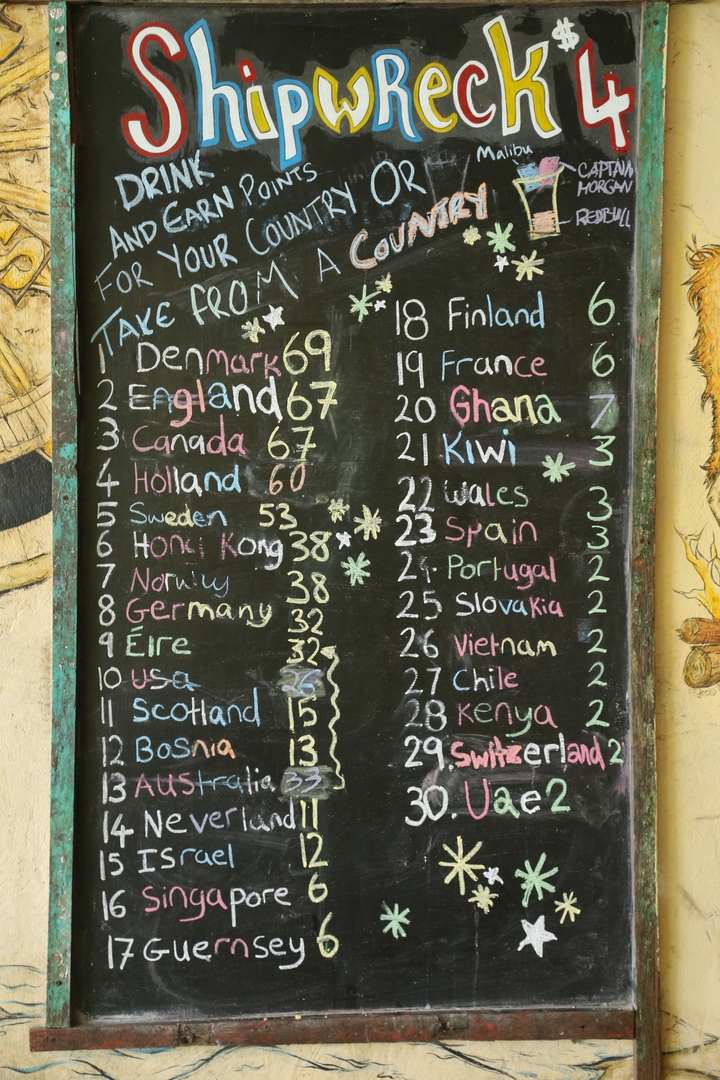 Shipwreck $4
DRINK
AND EARN POINTS
FOR YOUR COUNTRY OR
TAKE FROM A COUNTRY
Malibu
CAPTAIN
MORGAN
REDBULL
1 Denmark 69
2 England 67
3 Canada 67
4 Holland 60
5 Sweden 53
6 Hong Kong 38
7 Norway 38
8 Germany 32
9 Éire 32
10 USA 26
11 Scotland 15
12 BoSnia 13
13 AUStralia 33
14 Neverland 11
15 ISrael 12
16 Singapore 6
17 Guernsey 6
18 Finland 6
19 France 6
20 Ghana 7
21 Kiwi 3
22 Wales 3
23 Spain 3
24 Portugal 2
25 Slovakia 2
26 Vietnam 2
27 Chile 2
28 Kenya 2
29. Switzerland 2
30. Uae 2